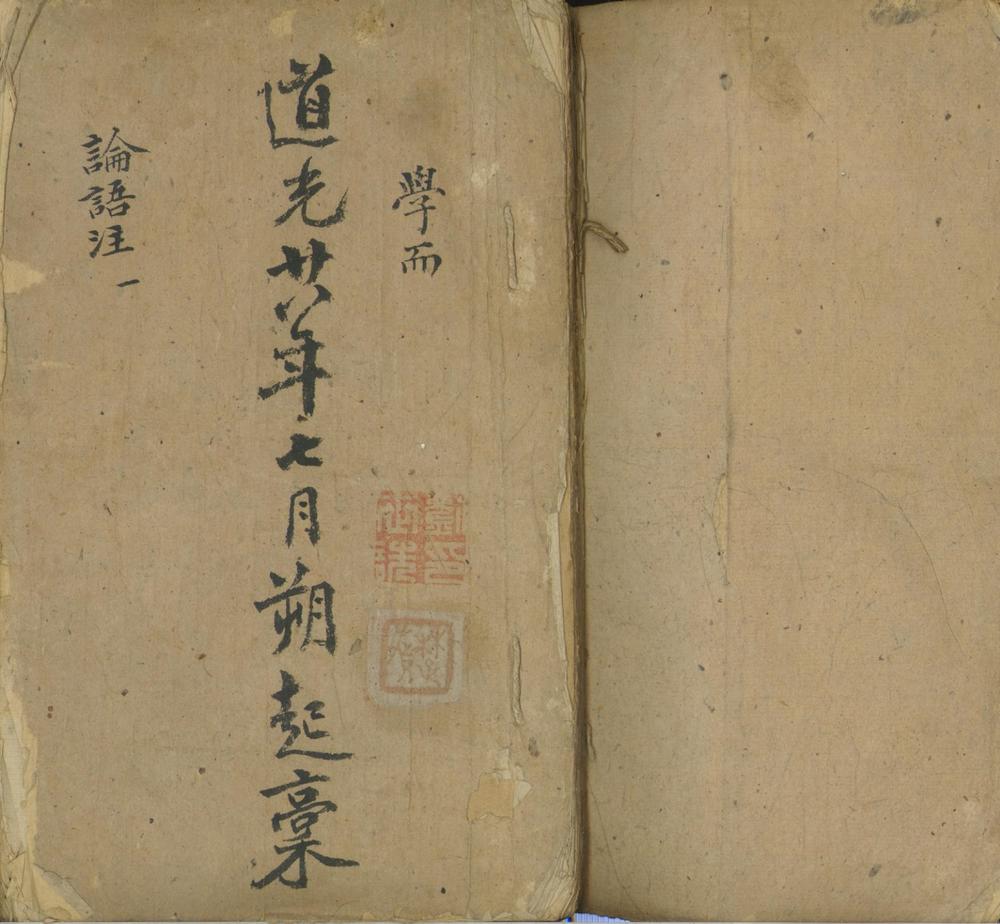 學而
道光廿八年七月朔起稾
論語注一